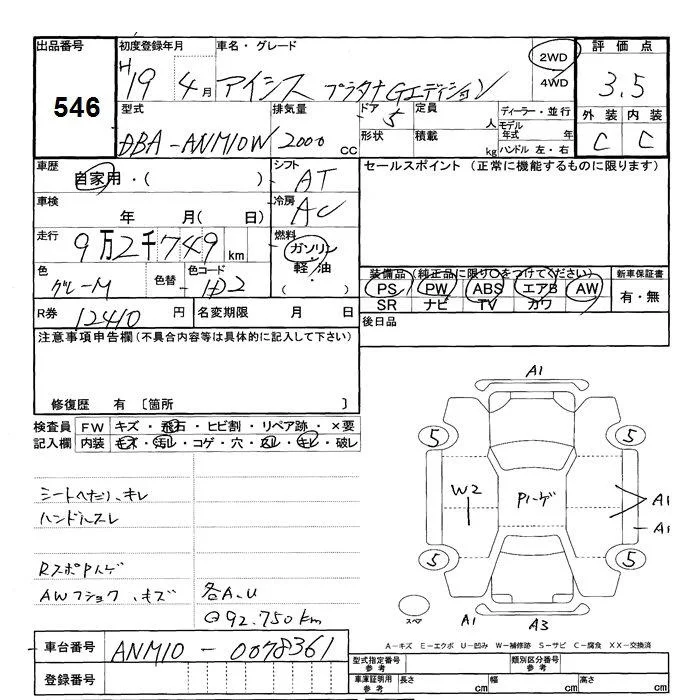 出品番号 初度登録年月 車名・グレード 2WD 評価点
546 H19 4月 アイシス プラタナGエディション 4WD 3.5
型式 排気量 ドア 5 定員 人 ディーラー・並行 外装 内装
DBA-ANM10W 2000 CC 形状 積載 kg モデル年式 年 ハンドル 左・右 C C
車歴 自家用・( ) シフト AT セールスポイント (正常に機能するものに限ります)
車検 年 月( 日) 冷房 AC
走行 9万2千749 km 燃料 ガソリン・軽油 ( )
色 グレーM 色替 色コード 1D2 装備品(純正品に限り○をつけてください) 新車保証書
PS PW ABS エアB AW 有・無
SR ナビ TV カワ
R券 12410 円 名変期限 月 日 後日品
注意事項申告欄(不具合内容等は具体的に記入して下さい)
修復歴 有 〔箇所 〕
検査員 FW キズ・飛石・ヒビ割・リペア跡・×要
記入欄 内装 キズ・汚レ・コゲ・穴・スレ・キレ・破レ
シートへたり、キレ
ハンドルスレ
RスポPハゲ
AWフショク、キズ 各A.U
@92.750km
A1
5 5
W2 Pハゲ A1
A1
5 5
スペ A1 A3
A-キズ E-エクボ U-凹み W-補修跡 S-サビ C-腐食 XX-交換済
車台番号 ANM10-0078361
登録番号
型式指定番号 参考 類別区分番号 参考
車庫証明用 参考 長さ cm 幅 cm 高さ cm